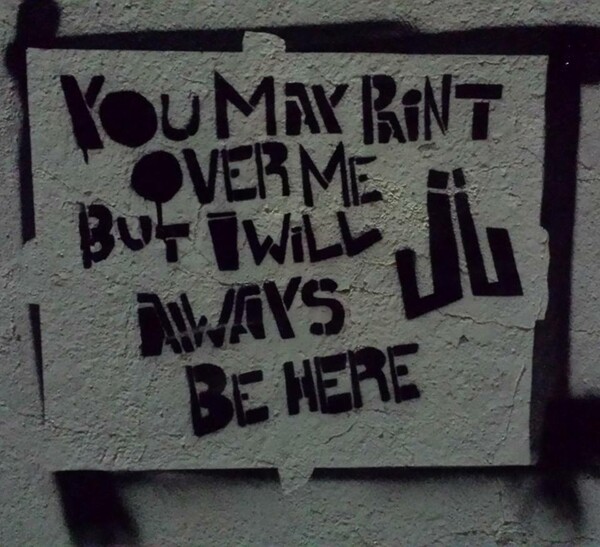 YOU MAY PAiNT
OVER ME
BUT I WiLL
ALWAYS
BE HERE